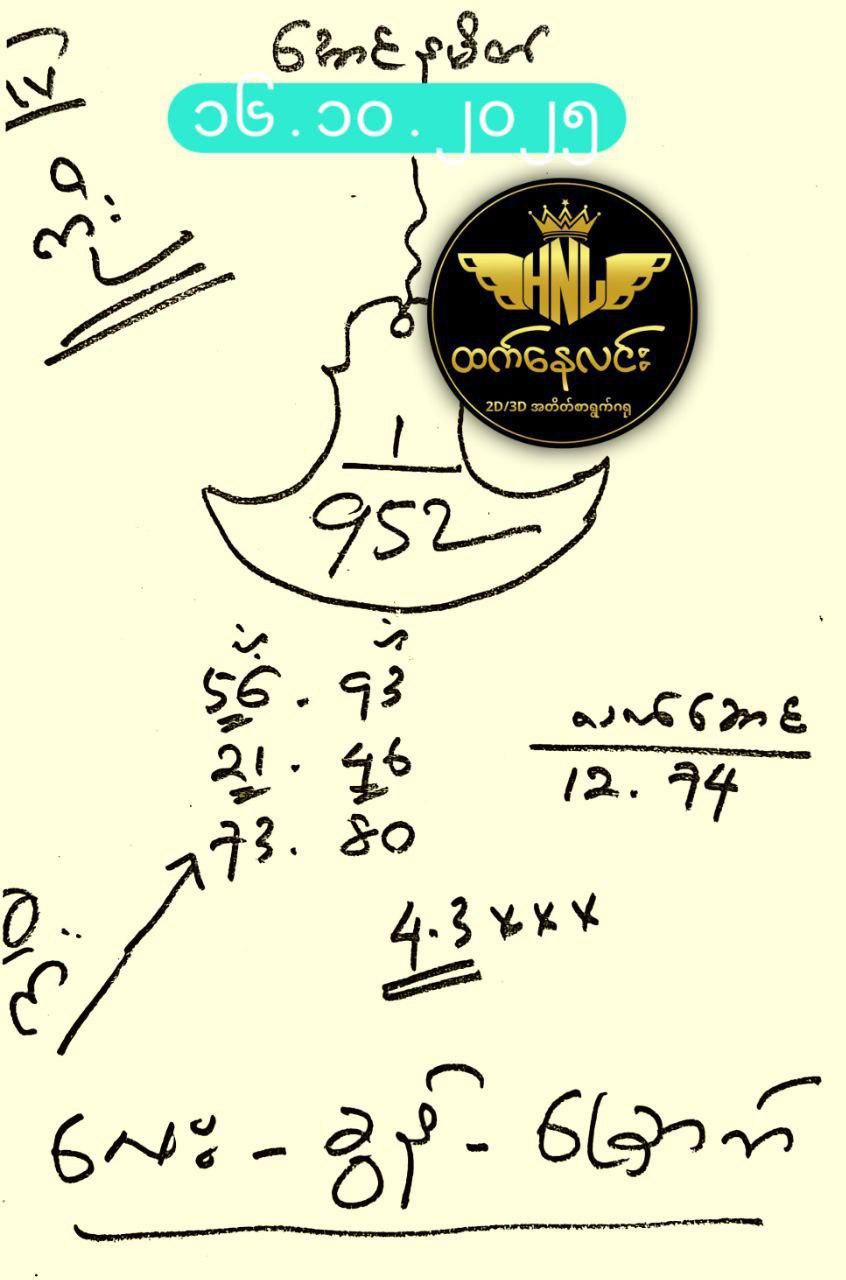 အောင်နမိတ်
၁၆.၁၀.၂၀၂၅
HNL
ထက်နေလင်း
2D/3D အတိတ်စာရွက်ဂရု
1
952
56 . 93
21 . 46
73 . 80
12 . 74
4.3 xxx
လေး - ခွန် - ခြောက်